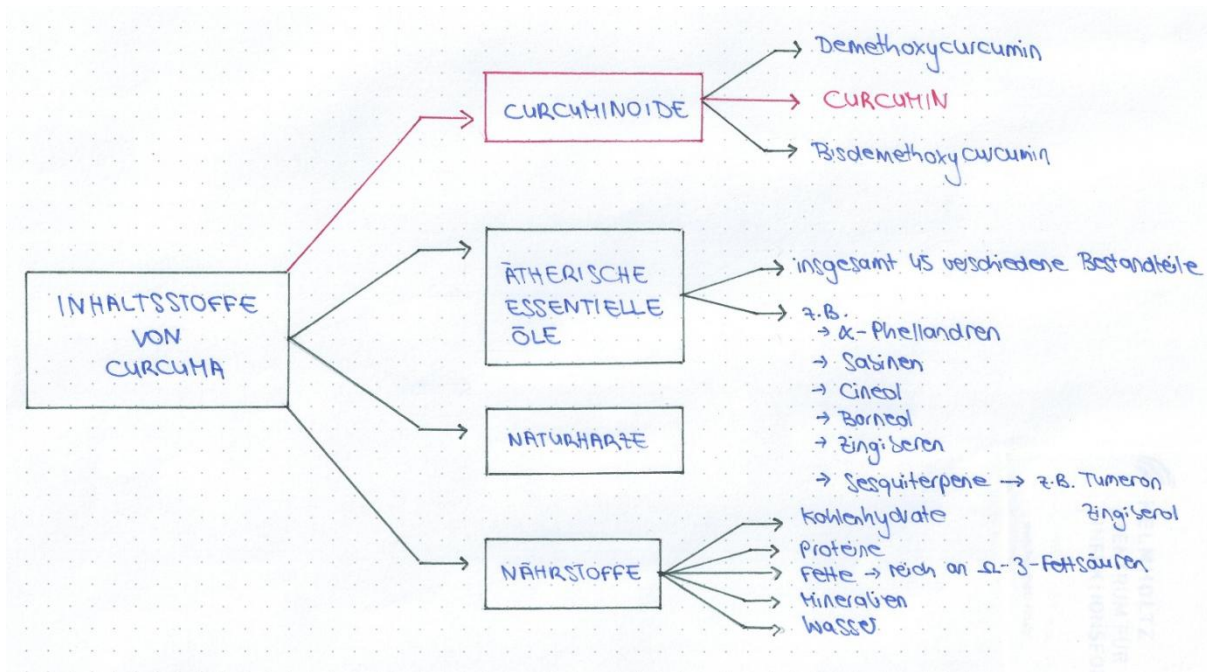 INHALTSSTOFFE
VON
CURCUMA
CURCUMINOIDE
Demethoxycurcumin
CURCUMIN
Bisdemethoxycurcumin
ÄTHERISCHE
ESSENTIELLE
ÖLE
insgesamt 45 verschiedene Bestandteile
z.B.
→ α-Phellandren
→ Sabinen
→ Cineol
→ Borneol
→ Zingiberen
→ Sesquiterpene → z.B. Tumeron
Zingiberol
NATURHARZE
NÄHRSTOFFE
Kohlenhydrate
Proteine
Fette → reich an Ω-3-Fettsäuren
Mineralien
Wasser